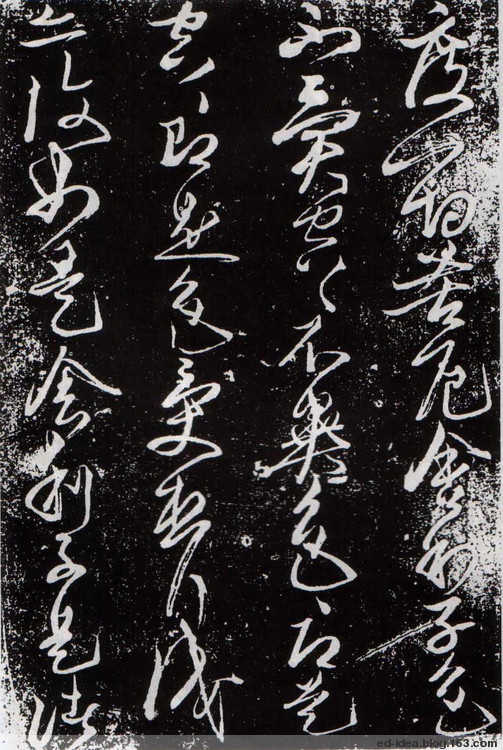 度一切苦厄舍利子色
不異空々不異色々即是
空々即是色受想行識
亦復如是舍利子是諸
ed-idea.blog.163.com